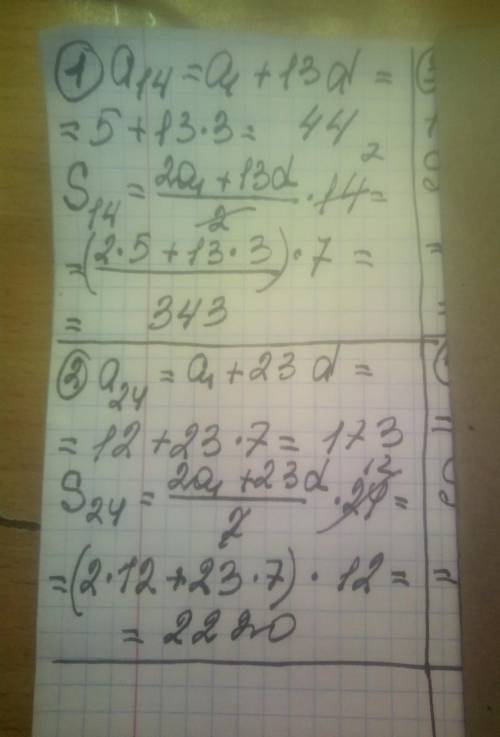 ① a₁₄ = a₁ + 13d =
= 5 + 13 · 3 = 44
S₁₄ = (2a₁ + 13d)/2 · 14 =
= (2 · 5 + 13 · 3) · 7 =
= 343
② a₂₄ = a₁ + 23d =
= 12 + 23 · 7 = 173
S₂₄ = (2a₁ + 23d)/2 · 24 = 12
= (2 · 12 + 23 · 7) · 12 =
= 2220